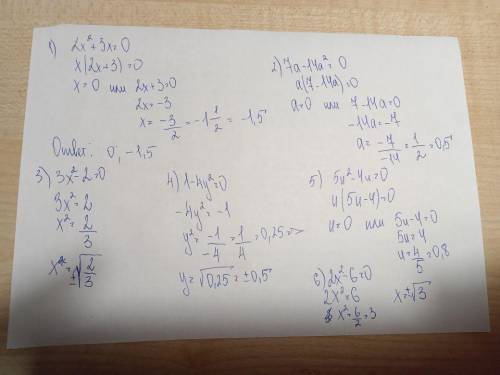 1) 2x²+3x=0
x(2x+3)=0
x=0 или 2x+3=0
2x=-3
x=-3/2=-1 1/2=-1,5
Ответ: 0; -1,5
2) 7a-14a²=0
a(7-14a)=0
a=0 или 7-14a=0
-14a=-7
a=-7/-14=1/2=0,5
3) 3x²-2=0
3x²=2
x²=2/3
x=±√2/3
4) 1-4y²=0
-4y²=-1
y²=-1/-4=1/4=0,25=>
y=√0,25=±0,5
5) 5u²-4u=0
u(5u-4)=0
u=0 или 5u-4=0
5u=4
u=4/5=0,8
6) 2x²-6=0
2x²=6
x²=6/2=3
x=±√3